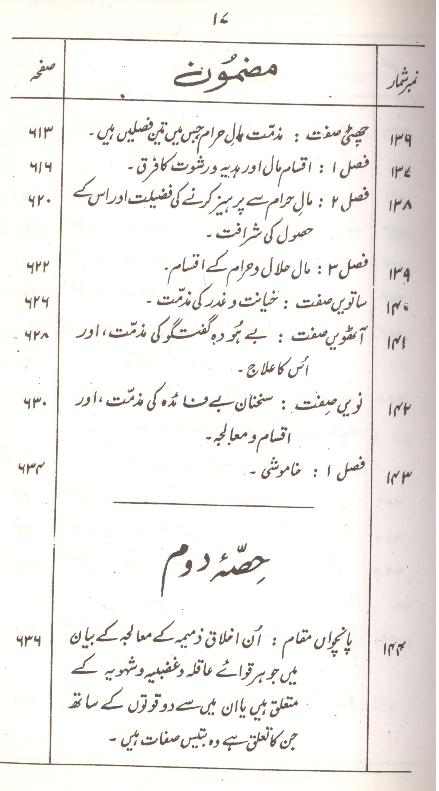 ۱۷
نمبرشمار مضمون صفحہ
۱۳۶ چھٹی صفت : مذمّت مالِ حرام جس میں تین فصلیں ہیں۔ ۶۱۳
۱۳۷ فصل ۱ : اقسام مال اور ہدیہ و رشوت کا فرق۔ ۶۱۶
۱۳۸ فصل ۲ : مالِ حرام سے پرہیز کرنے کی فضیلت اور اس کے ۶۲۰
حصول کی شرافت۔
۱۳۹ فصل ۳ : مال حلال و حرام کے اقسام۔ ۶۲۲
۱۴۰ ساتویں صفت : خیانت و غدر کی مذمّت۔ ۶۲۶
۱۴۱ آٹھویں صفت : بے ہُودہ گفتگو کی مذمّت، اور ۶۲۸
اُس کا علاج۔
۱۴۲ نویں صفت : سخنان بے فائدہ کی مذمّت، اور ۶۳۰
اقسام و معالجہ۔
۱۴۳ فصل ۱ : خاموشی۔ ۶۳۴
حِصّۂ دوم
۱۴۴ پانچواں مقام : اُن اخلاق ذمیمہ کے معالجہ کے بیان ۶۳۶
میں جو ہر قوائے عاقلہ و غضبیہ و شہویہ کے
متعلق ہیں یا ان میں سے دو قوتوں کے ساتھ
جن کا تعلق ہے وہ بتیس صفات ہیں۔